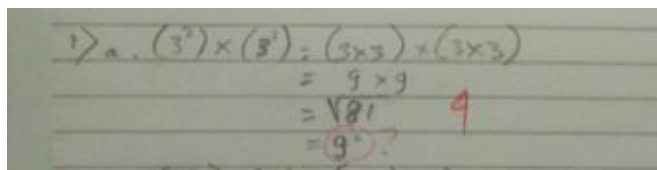 1) a. (3²) × (3²) = (3×3) × (3×3)
= 9 × 9
= √81 9
= 9 ?